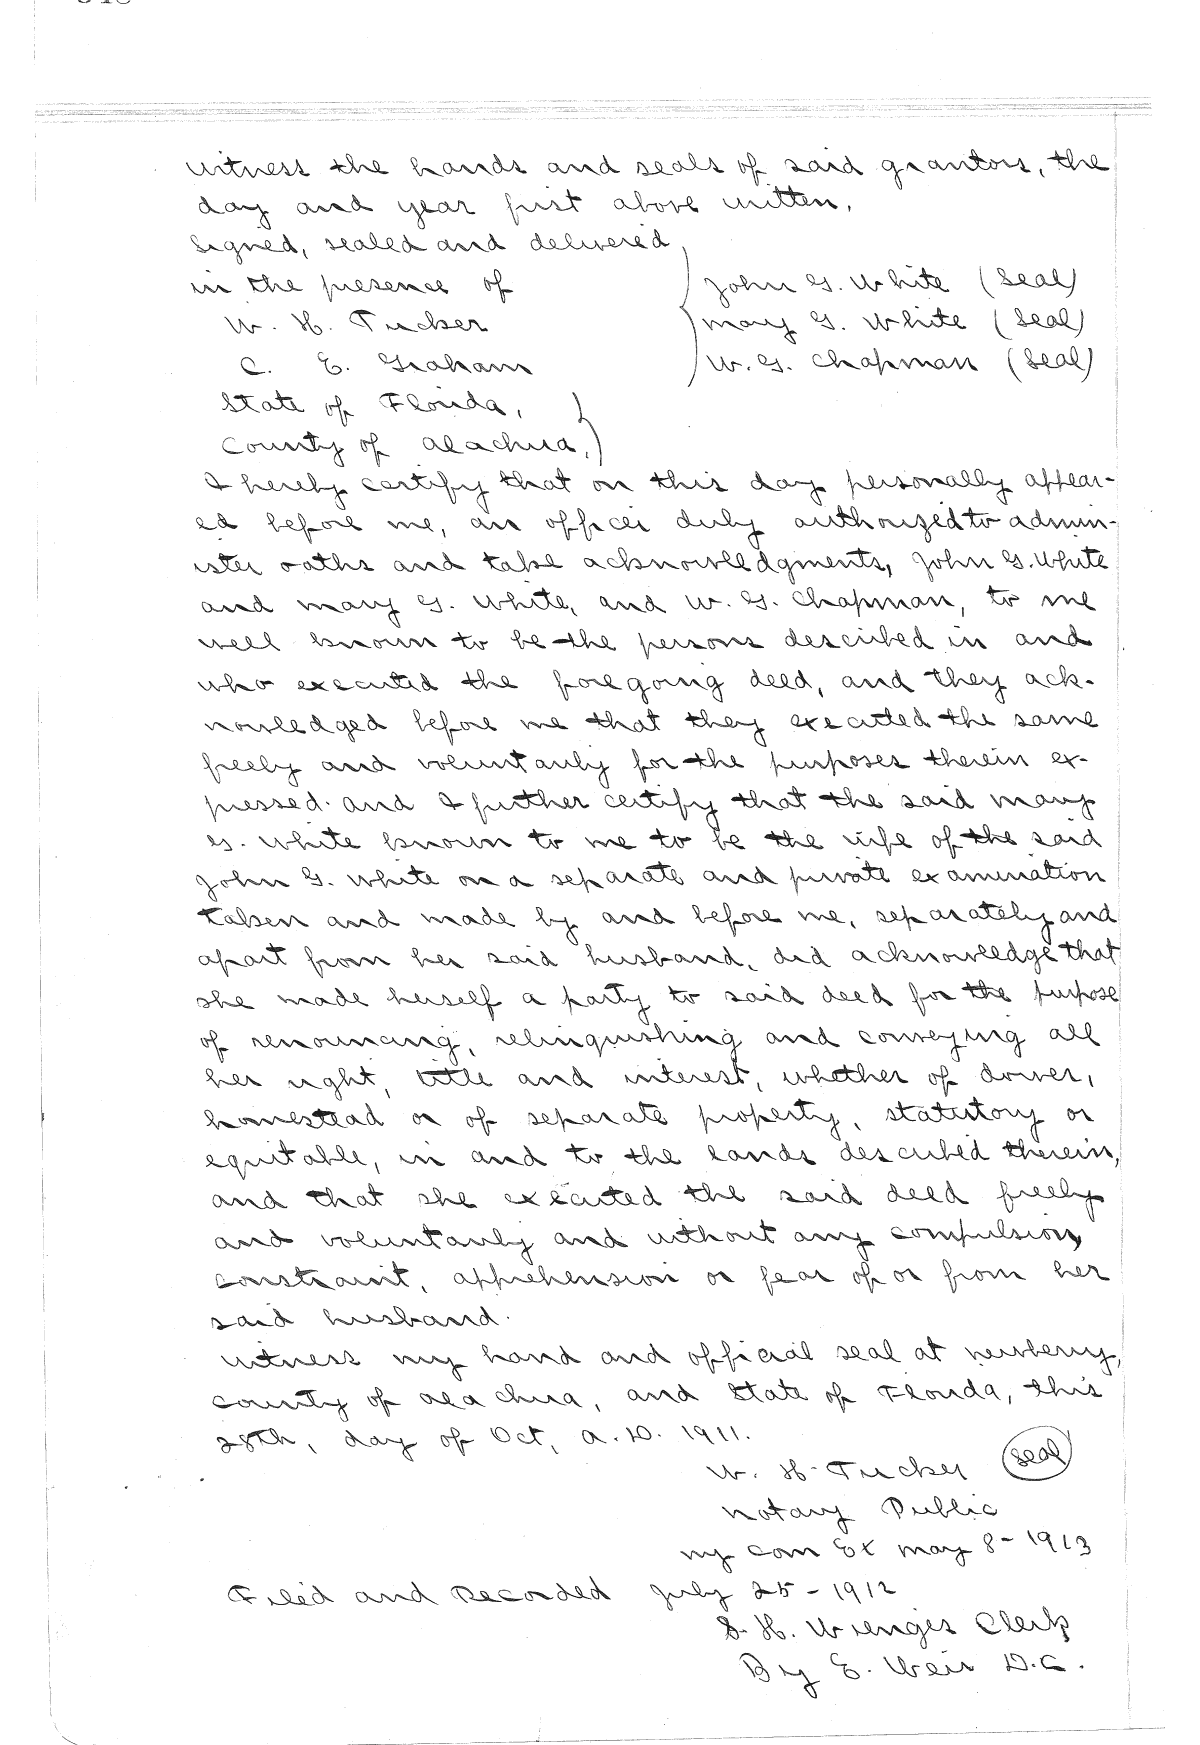 witness the hands and seals of said grantors, the
day and year first above written.
Signed, sealed and delivered
in the presence of
John G. White (Seal)
W. H. Tucker
Mary G. White (Seal)
C. E. Graham
W. G. Chapman (Seal)
State of Florida,
County of Alachua,
I hereby certify that on this day personally appear-
ed before me, an officer duly authorized to admin-
ister oaths and take acknowledgments, John G. White
and Mary G. White, and W. G. Chapman, to me
well known to be the persons described in and
who executed the foregoing deed, and they ack-
nowledged before me that they executed the same
freely and voluntarily for the purposes therein ex-
pressed. and I further certify that the said Mary
G. White known to me to be the wife of the said
John G. White on a separate and private examination
taken and made by and before me, separately and
apart from her said husband, did acknowledge that
she made herself a party to said deed for the purpose
of renouncing, relinquishing and conveying all
her right, title and interest, whether of dower,
homestead or of separate property, statutory or
equitable, in and to the lands described therein,
and that she executed the said deed freely
and voluntarily and without any compulsion,
constraint, apprehension or fear of or from her
said husband.
Witness my hand and official seal at Newberry,
County of Alachua, and State of Florida, this
28th, day of Oct, A.D. 1911.
W. H. Tucker Seal
Notary Public
my com Ex May 8-1913
Filed and Recorded July 25-1912
S. H. Wienges Clerk
By E. Weir D.C.